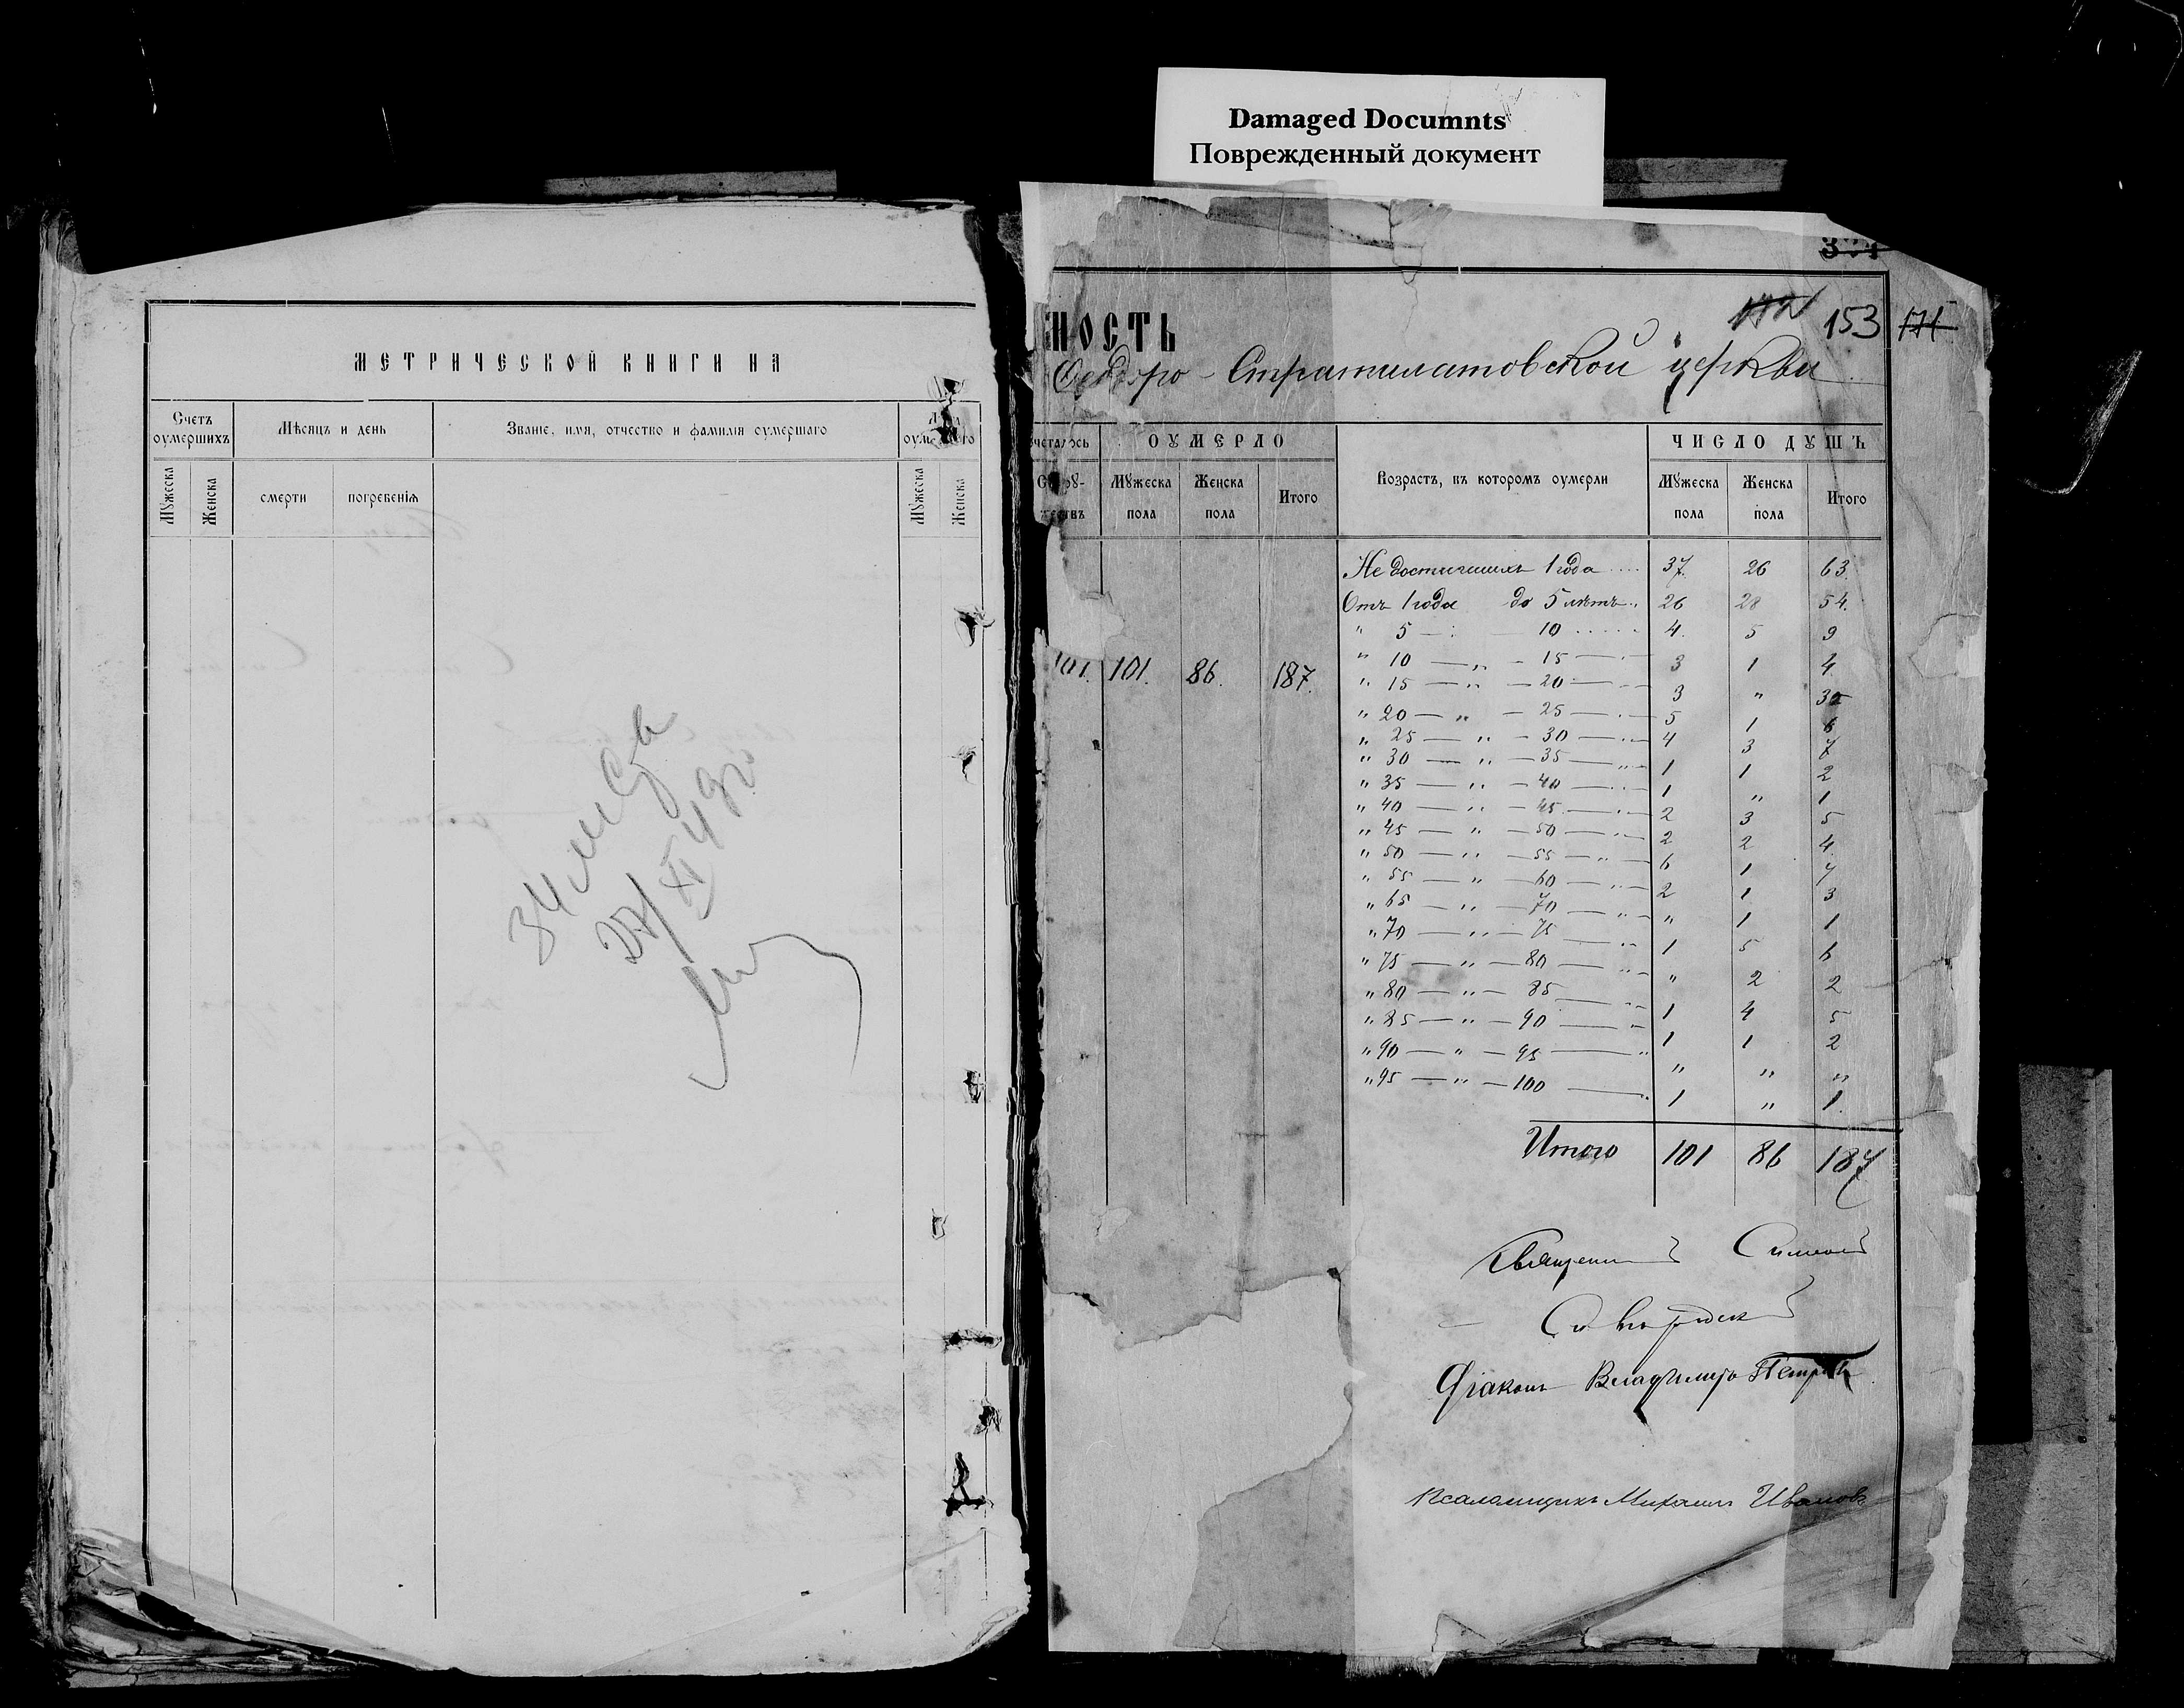 Damaged Documnts
Поврежденный документ
МЕТРИЧЕСКОЙ КНИГИ НА
Счетъ оумершихъ
Мѣсяцъ и день
Званіе, имя, отчество и фамилія оумершаго
Мужеска
Женска
смерти
погребенія
Мужеска
Женска
34
27/XI 49г.
153
171
МОСТЬ
Ѳеодоро-Стратилатовской церкви
ОУМЕРЛО
Возрастъ, въ которомъ оумерли
ЧИСЛО ДУШЪ
Мужеска пола
Женска пола
Итого
Мужеска пола
Женска пола
Итого
101. 101. 86. 187.
Не достигшихъ 1 года .... 37. 26 63.
Отъ 1 года до 5 лѣтъ.. 26 28 54.
" 5 — 10 ..... 4. 5 9
" 10 — " — 15 — 3 1 4.
" 15 — " — 20 — 3 " 3
" 20 — " — 25 — 5 1 6
" 25 — " — 30 — " — 4 3 7
" 30 — " — 35 — " — 1 1 2
" 35 — " — 40 — " — 1 " 1
" 40 — " — 45 — " — 2 3 5
" 45 — " — 50 — " — 2 2 4
" 50 — " — 55 — " — 6 1 7
" 55 — " — 60 — " — 2 1 3
" 65 — " — 70 — " — " 1 1
" 70 — " — 75 — " — 1 5 6
" 75 — " — 80 — " — " 2 2
" 80 — " — 85 — " — 1 4 5
" 85 — " — 90 — " — 1 1 2
" 90 — " — 95 — " " " "
" 95 — " — 100 — " 1 " 1.
Итого 101 86 187
Священникъ Симеонъ
Діаконъ Владиміръ Петровъ
Псаломщикъ Михаилъ Ивановъ